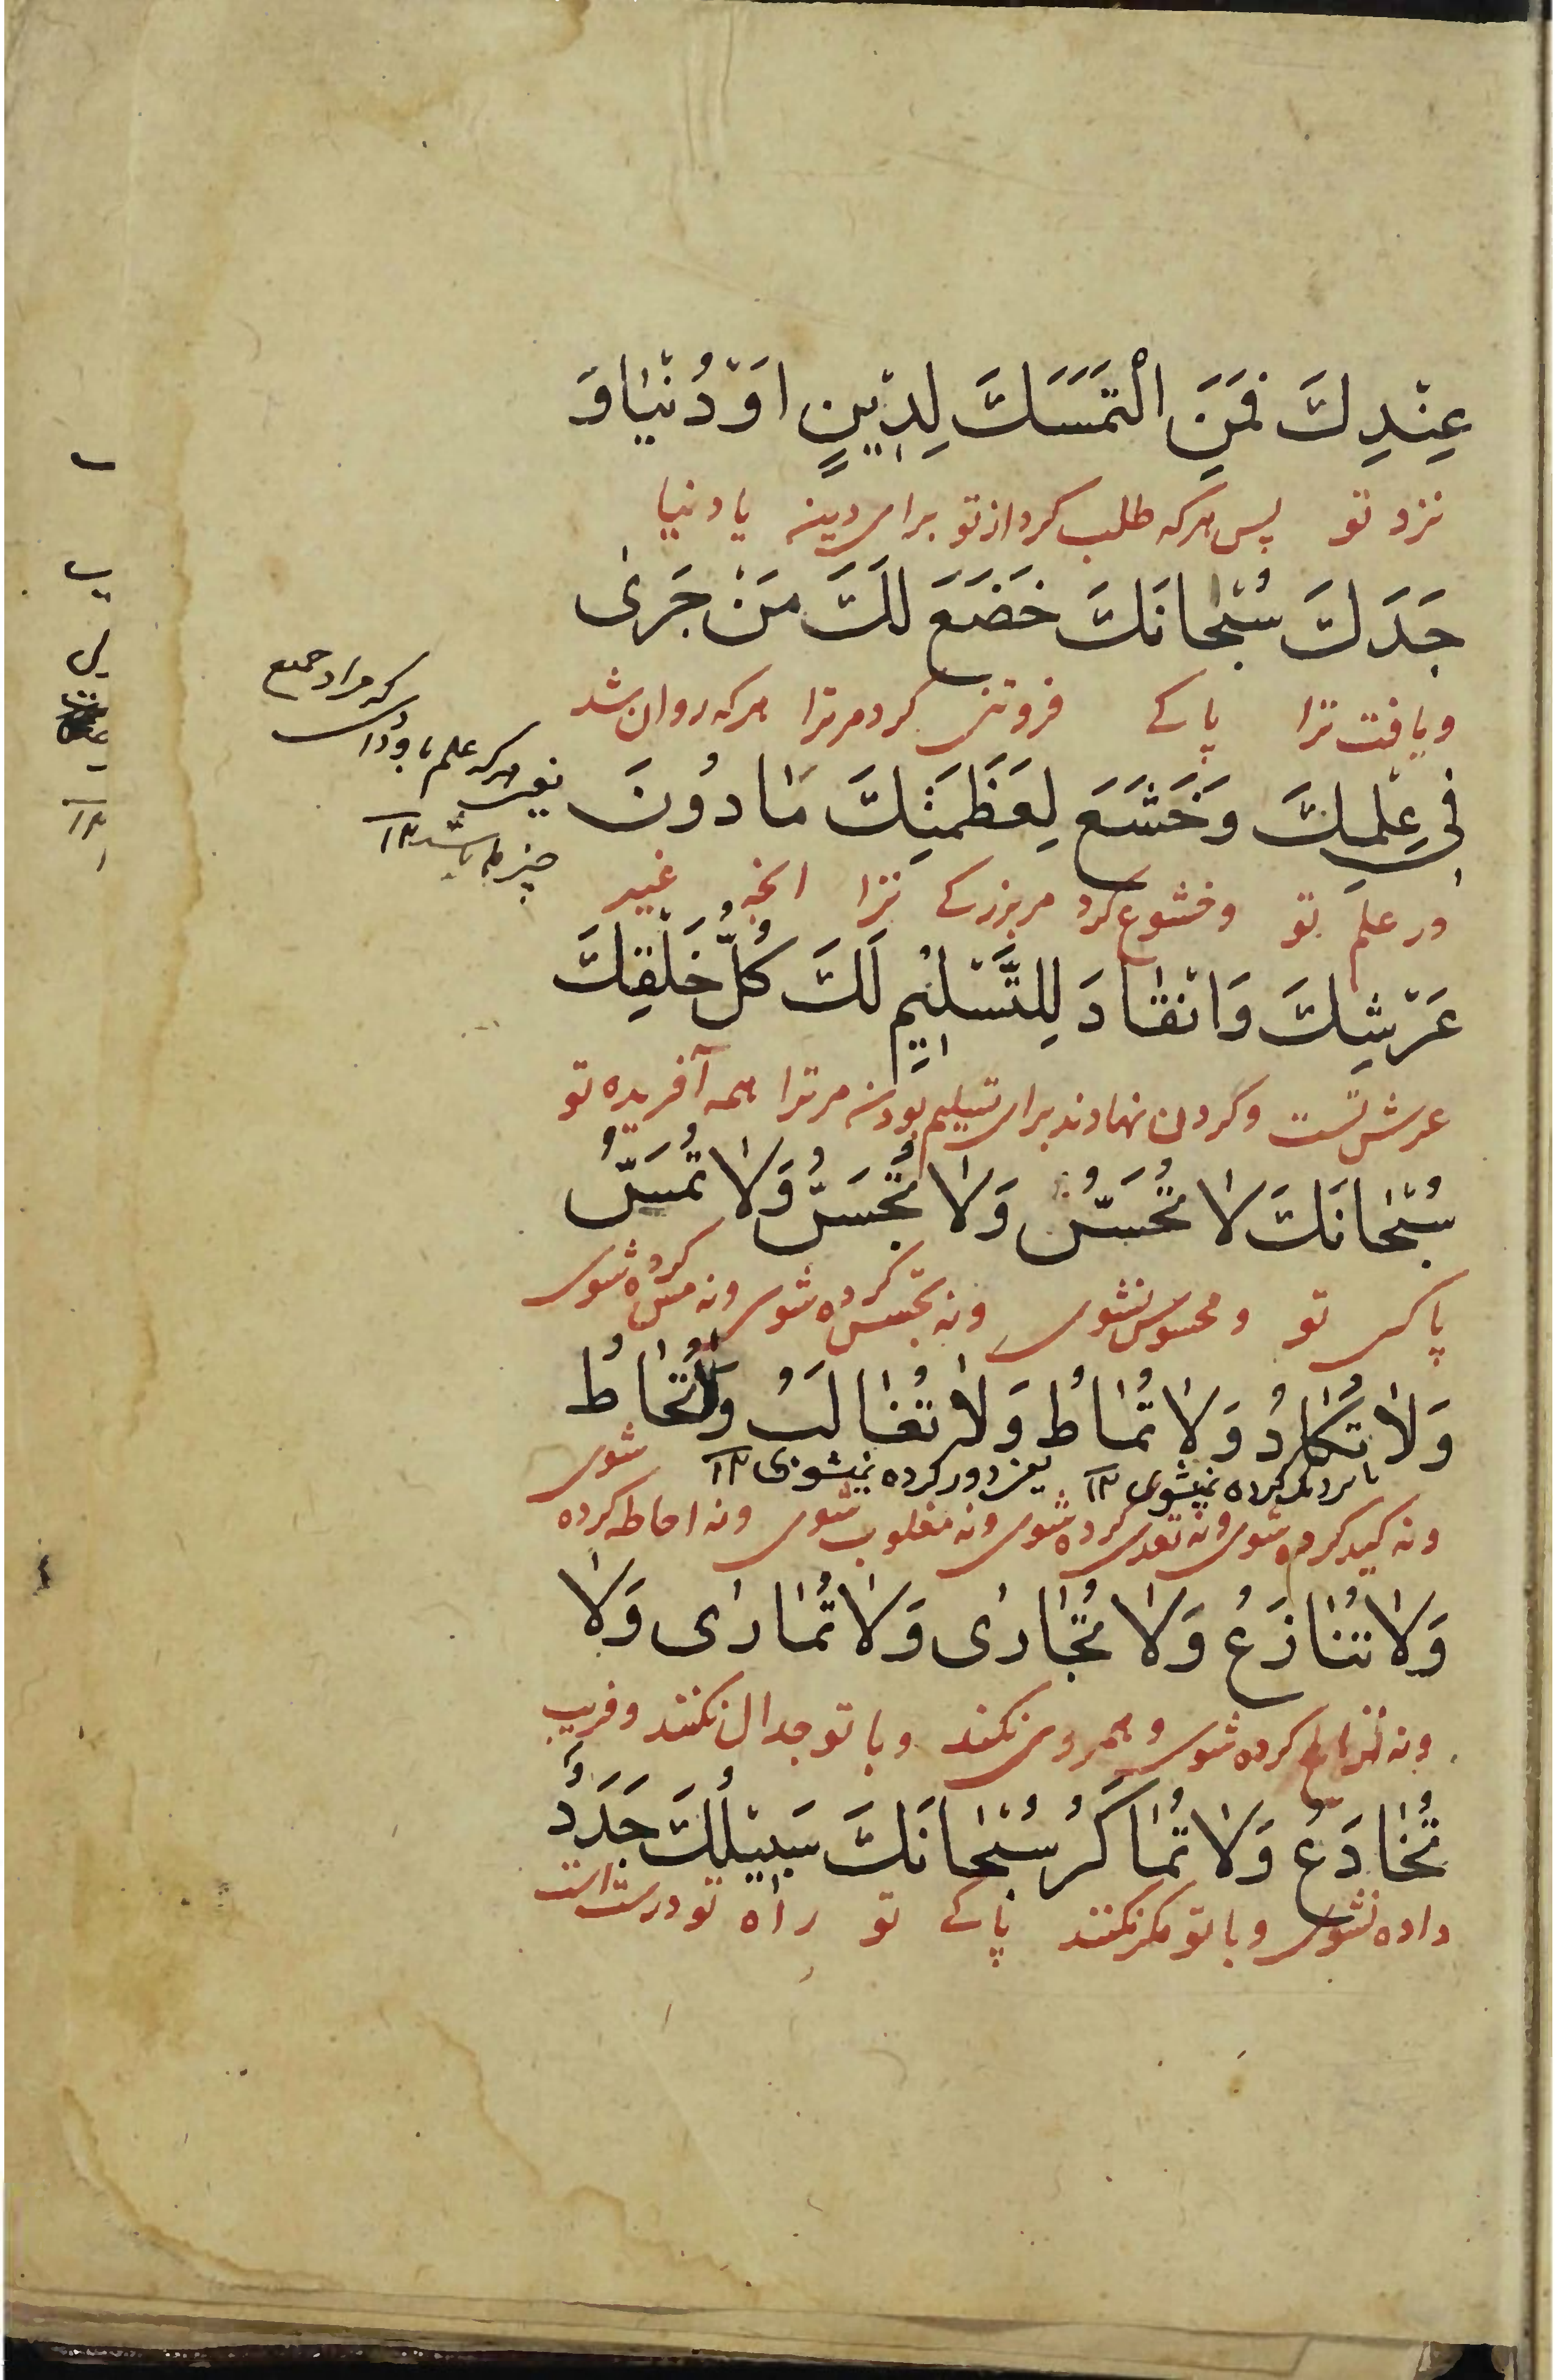 عِنْدِكَ فَمَنِ الْتَمَسَكَ لِدِيْنٍ اَوْ دُنْيَا وَ
نزد تو پس هرکه طلب کرد از تو برای دین یا دنیا
جَدَكَ سُبْحانَكَ خَضَعَ لَكَ مَنْ جَرىٰ
و یافت ترا پاکے فروتنی کرد مر ترا هرکه روان شد
فِي عِلْمِكَ وَخَشَعَ لِعَظَمَتِكَ مٰا دُونَ
در علم تو و خشوع کرد مر بزرگے ترا انچه غیر
عَرْشِكَ وَانْقٰادَ لِلتَّسْلِيْمِ لَكَ كُلُّ خَلْقِكَ
عرش تست و گردن نهادند برای تسلیم بودن مر ترا همه آفریده تو
سُبْحٰانَكَ لا تُحَسُّ وَلا تُجَسُّ وَلا تُمَسُّ
پاکی تو و محسوس نشوی و نه تجسس کرده شوی و نه مس کرده شوی
وَلا تُكٰادُ وَلا تُمٰاطُ وَلا تُغٰالَبُ وَلا تُحٰاطُ
کرده نمیشوی ١٢ یعنے دور کرده نمیشوی ١٢
و نه کید کرده شوی و نه تعدی کرده شوی و نه مغلوب شوی و نه احاطه کرده شوی
وَلا تُنٰازَعُ وَلا تُجٰارٰى وَلا تُمٰارٰى وَلا
و نه نزاع کرده شوی و همروی نکند و با تو جدال نکنند و فریب
تُخٰادَعُ وَلا تُمٰاكَرُ سُبْحٰانَكَ سَبِيْلُكَ جَدَدٌ
داده نشوی و با تو مکر نکنند پاکے تو راه تو درست است
که مراد جمیع
یعنے هرکه علم
چیزها باشد ١٢